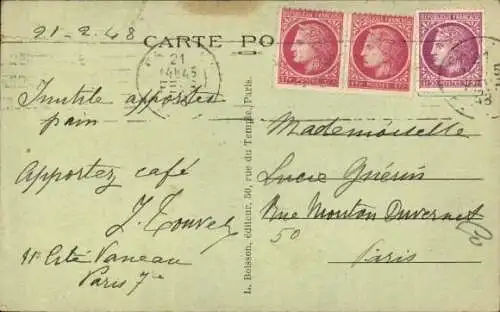 21-2.48
CARTE PO
RÉPUBLIQUE FRANÇAISE
21
Inutile apporter
pain
Apportez café
J. Touvet
11 Cité Vaneau
Paris 7e
L. Boisson, éditeur, 50, rue du Temple, Paris.
Mademoiselle
Lucie Guérin
Rue Mouton Duvernet
50
Paris